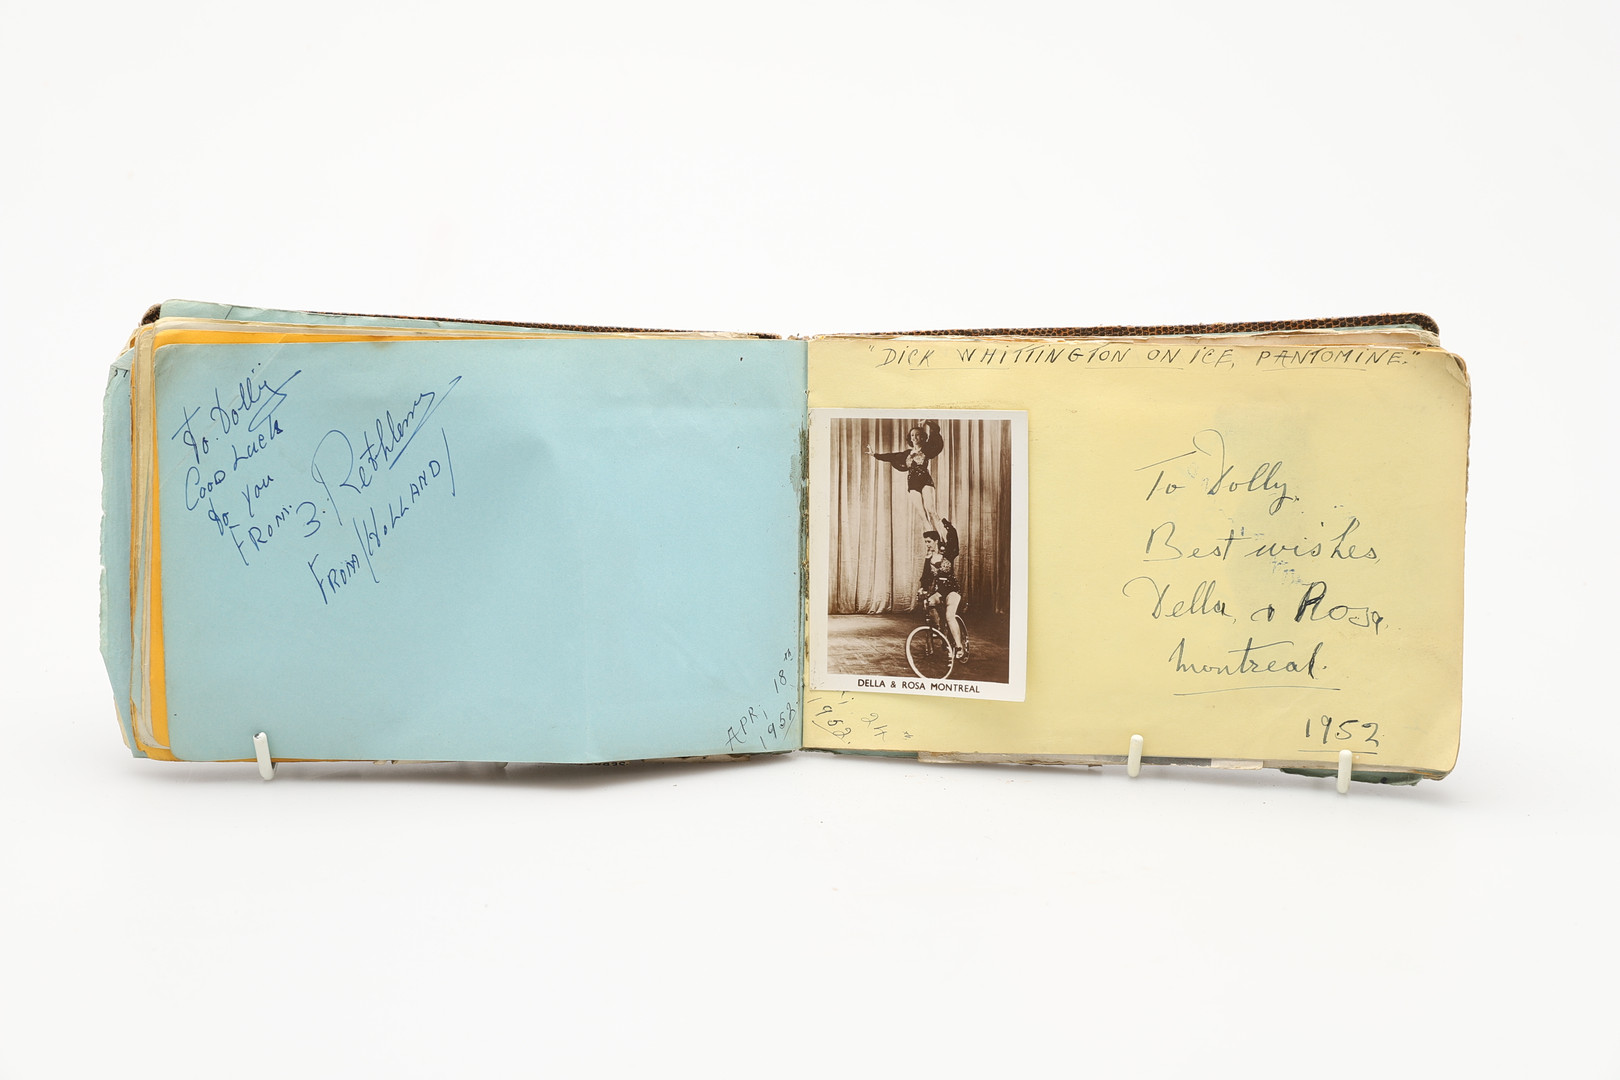 To. Dolly
Good Luck
To You
FROM.
3. Rethlemy
FROM (HOLLAND)
APR. 18th
1952
"DICK WHITTINGTON ON ICE, PANTOMINE."
DELLA & ROSA MONTREAL
To Dolly.
Best wishes,
Della, & Rosa,
montreal.
1952
1952.